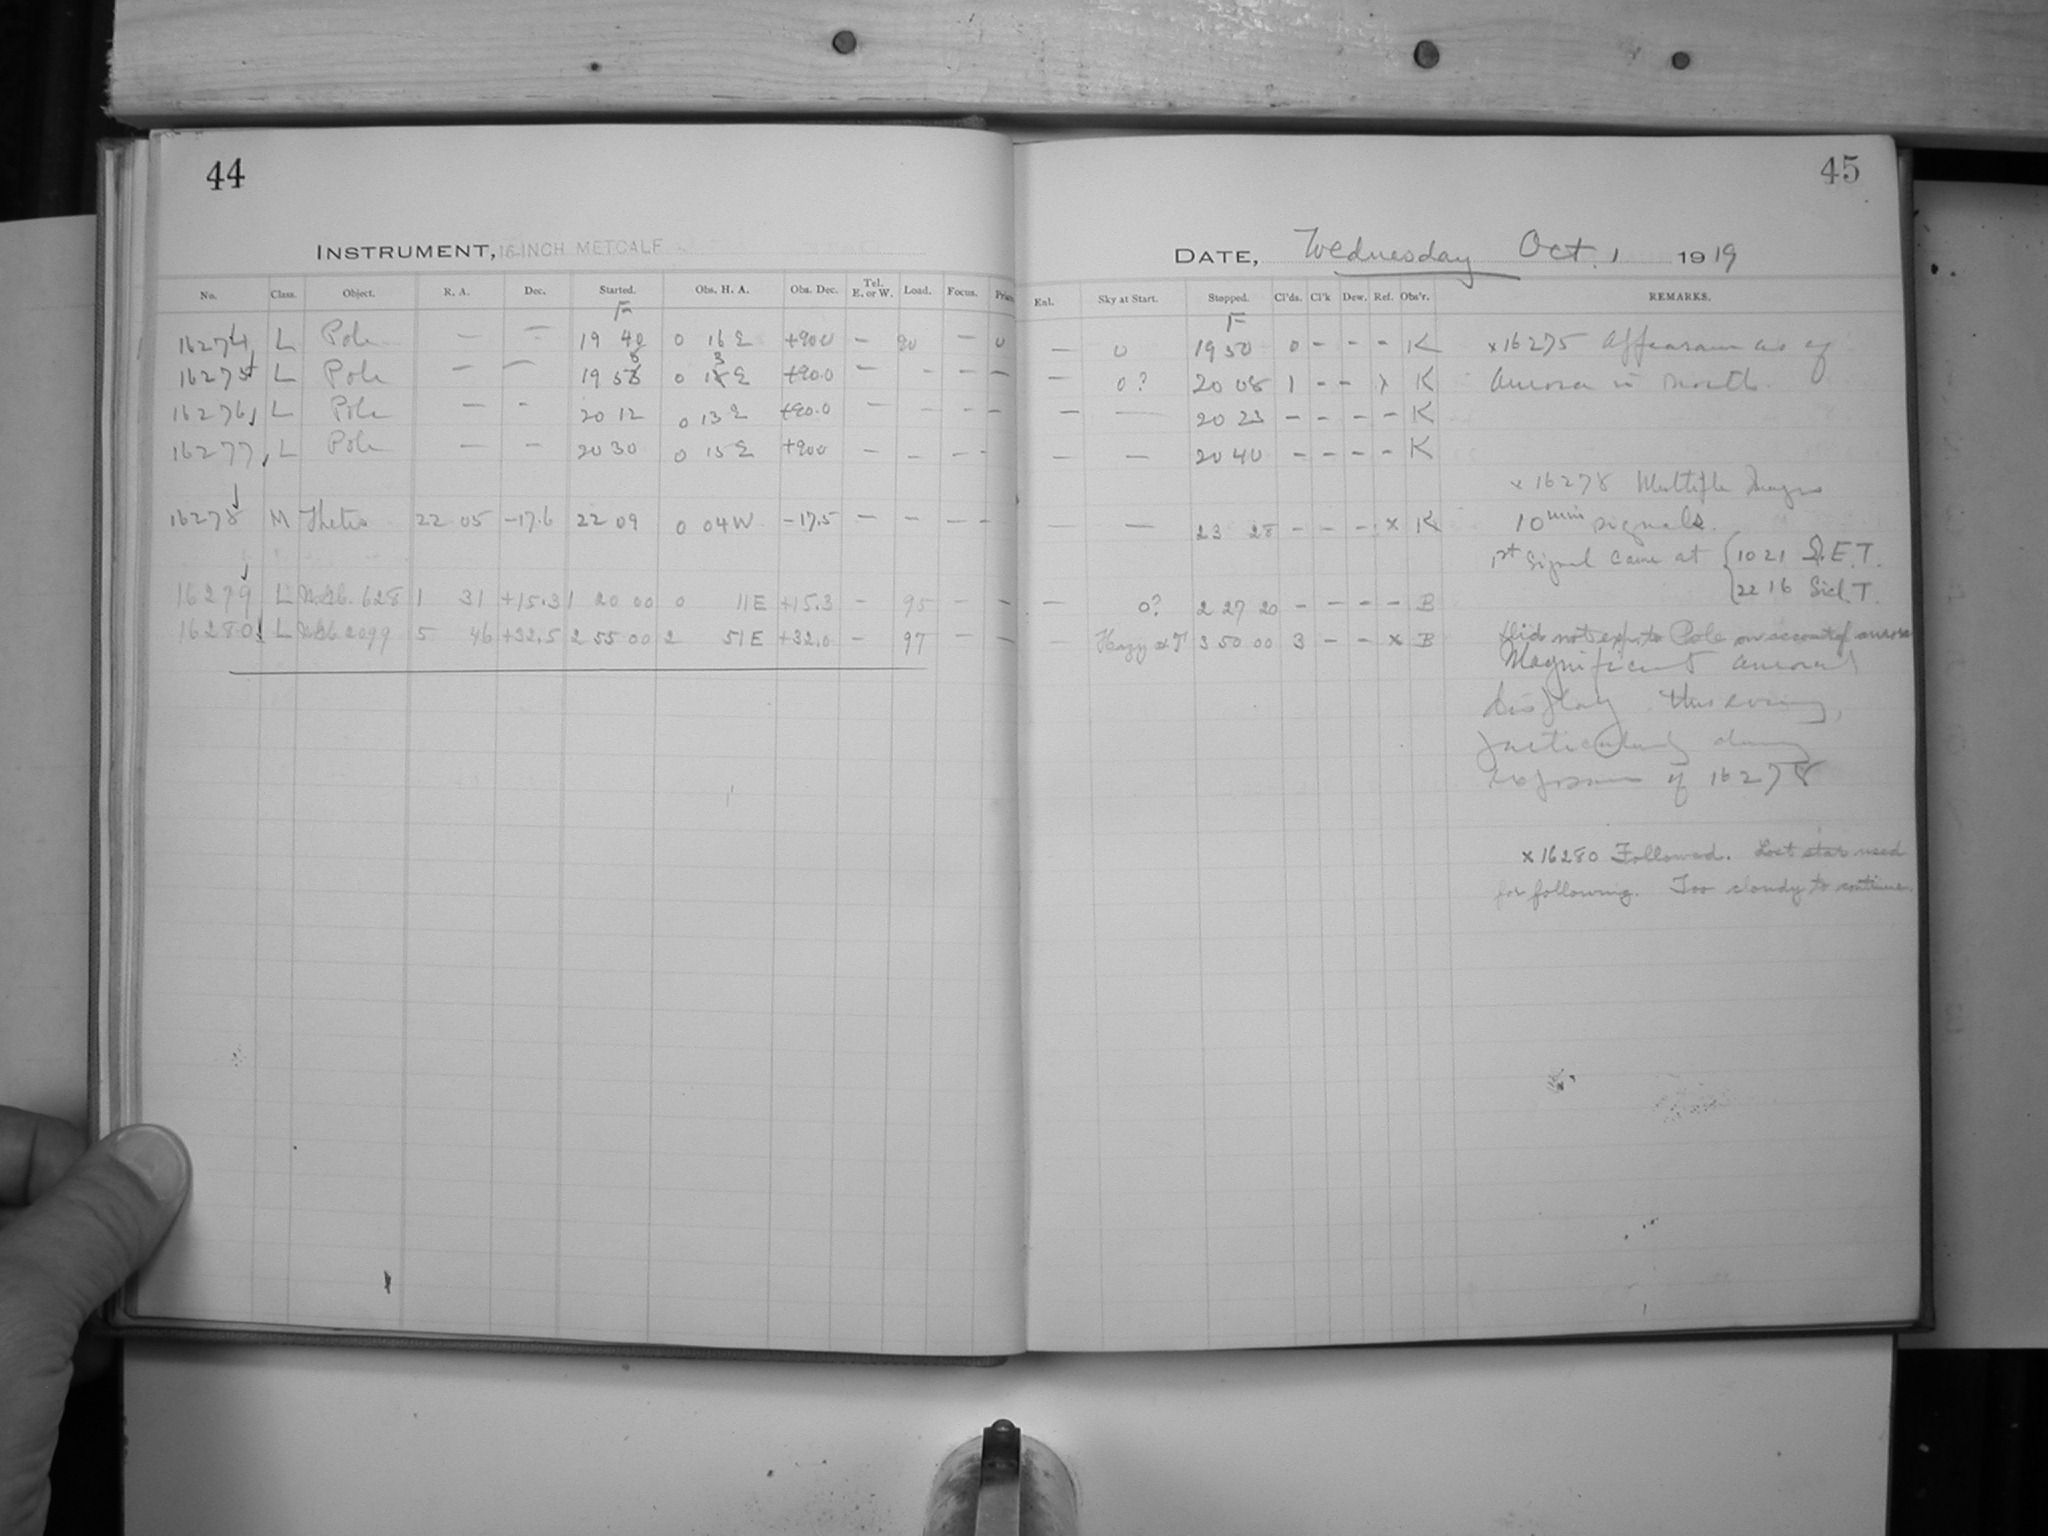 44
INSTRUMENT, 16-INCH METCALF
No. Class. Object. R. A. Dec. Started. Obs. H. A. Obs. Dec. Tel. E. or W. Load. Focus. Prism
F
16274 L Pole — — 19 40 0 16 E +90.0 — 90 — 0
16275 L Pole — — 19 58 0 13 E +90.0 — - — —
16276 L Pole — - 20 12 0 13 E +90.0 — - — —
16277 L Pole — — 20 30 0 15 E +900 — - — -
16278 M Thetis 22 05 -17.6 22 09 0 04 W -17.5 — — — -
16279 L 628 1 31 +15.3 1 20 00 0 11 E +15.3 — 95 — —
16280 L 2099 5 46 +32.5 2 55 00 2 51 E +32.0 — 97 — —
45
DATE, Wednesday Oct. 1 1919
Enl. Sky at Start. Stopped. Cl'ds. Cl'k Dew. Ref. Obs'r. REMARKS.
F
— 0 19 50 0 - - - K x16275 Appearance of
— 0? 20 08 1 - - x K aurora in north.
— — 20 23 - - - - K
— — 20 40 - - - - K
x 16278 Multiple Images
— — 23 28 - - - x K 10 min signals.
1st Signal came at { 10 21 E.T.
22 16 Sid. T.
— 0? 2 27 20 - - - - B
— Hazy 3 50 00 3 - - x B Did not expose to Pole on account of aurora
Magnificent auroral
display this evening,
particularly during
exposure of 16278
x 16280 Followed. Lost star used
for following. Too cloudy to continue.